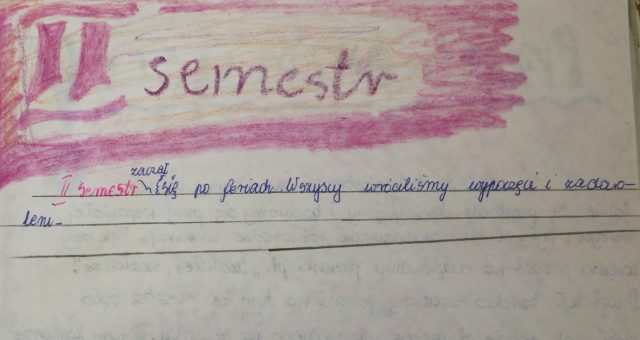 II semestr
zaczął
II semestr się po feriach. Wszyscy wróciliśmy wypoczęci i zadowo-
leni.